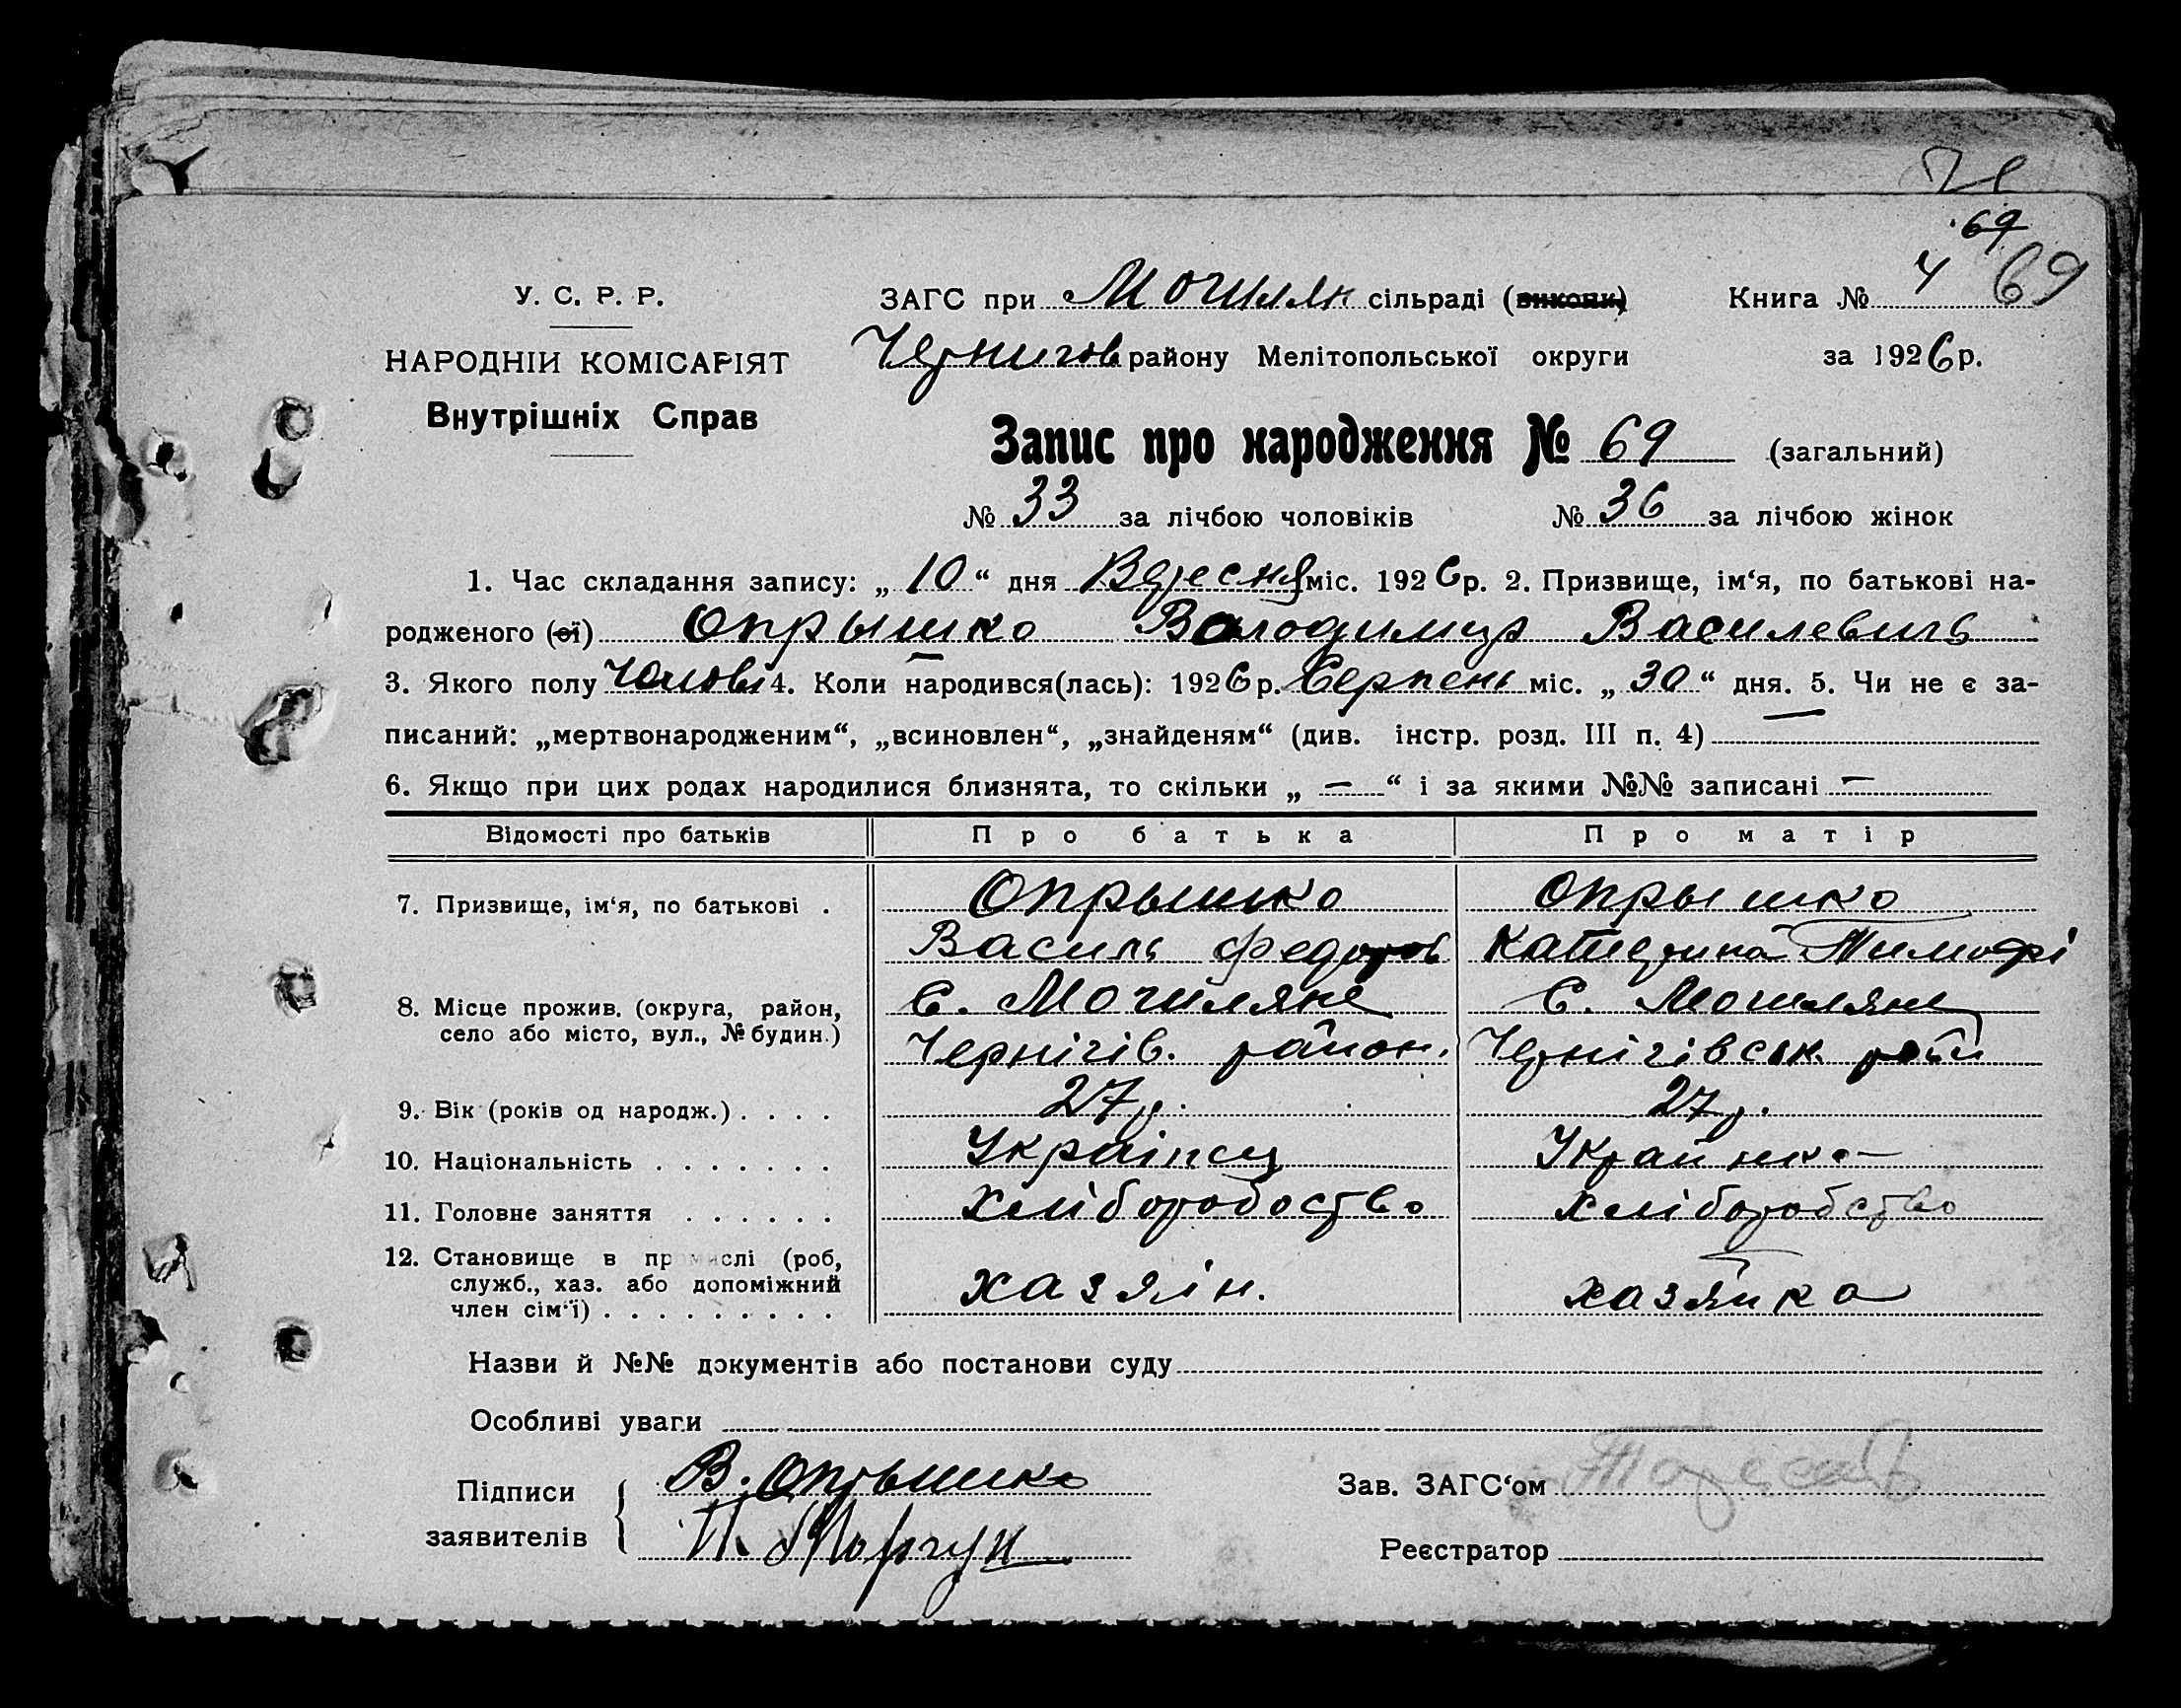 71
69
У. С. Р. Р.
ЗАГС при Могилян сільраді (викони)
Книга № 4 69
НАРОДНІЙ КОМІСАРІЯТ
Чернигов району Мелітопольської округи
за 1926 р.
Внутрішніх Справ
Запис про народження № 69 (загальний)
№ 33 за лічбою чоловіків № 36 за лічбою жінок
1. Час складання запису: „10“ дня Вересня міс. 1926 р. 2. Призвище, ім‘я, по батькові на-
родженого (ої) Опрышко Володимир Василевичь
3. Якого полу Чолові 4. Коли народився(лась): 1926 р. Серпень міс. „30“ дня. 5. Чи не є за-
писаний: „мертвонародженим“, „всиновлен“, „знайденям“ (див. інстр. розд. III п. 4) —
6. Якщо при цих родах народилися близнята, то скільки „ — “ і за якими №№ записані —
Відомості про батьків Про батька Про матір
7. Призвище, ім‘я, по батькові . Опрышко Опрышко
Василь Федоров Катерина Тимофі
8. Місце прожив. (округа, район, С. Могиляне С. Могиляне
село або місто, вул., № будин.) Чернігів. район. Чернігівськ. рай
9. Вік (років од народж.) . . . . 27 р. 27 р.
10. Національність . . . . . . . Українец Украинка
11. Головне заняття . . . . . . хліборобоство хліборобство
12. Становище в промислі (роб,
служб., хаз. або допоміжний хазяін. хазяйка
член сім‘ї) . . . . . . . . .
Назви й №№ документів або постанови суду
Особливі уваги
Підписи В. Опрышко
Зав. ЗАГС‘ом
заявителів
Реєстратор